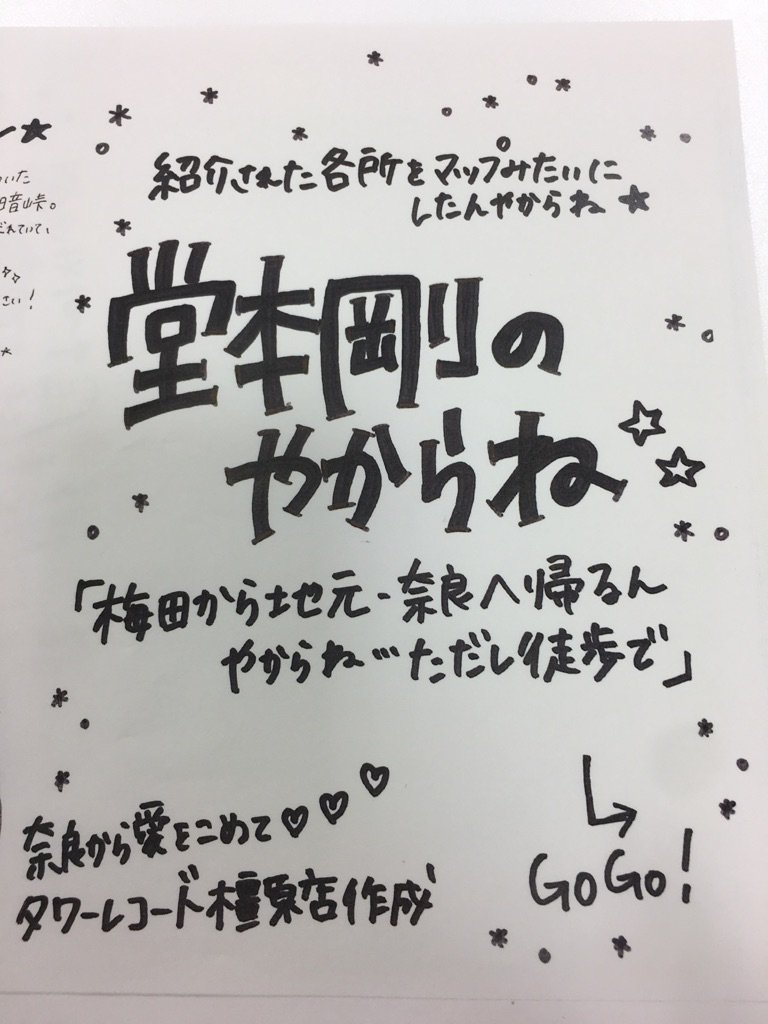 紹介された各所をマップみたいに
したんやからね★
堂本剛の
やからね☆☆
「梅田から地元・奈良へ帰るん
やからね…ただし徒歩で」
奈良から愛をこめて♡♡♡
タワーレコード橿原店作成
GoGo!
いた
暗峠。
だれていて、
さい!